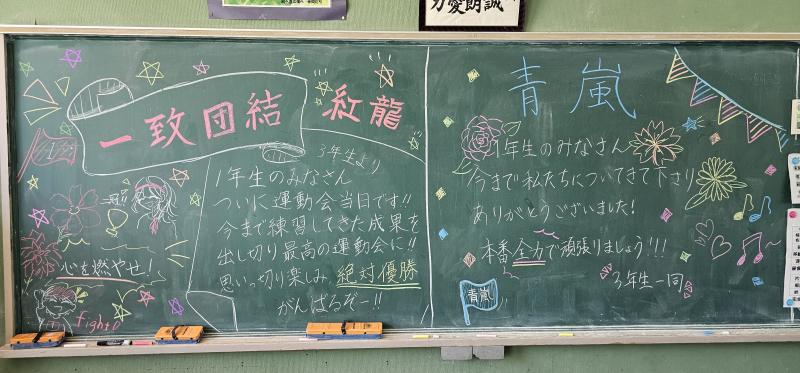 力愛朗誠
一致団結
紅龍
3年生より
1年生のみなさん
ついに運動会当日です!!
今まで練習してきた成果を
出し切り最高の運動会に!!
思いっ切り楽しみ 絶対優勝
がんばるぞー!!
心を燃やせ!
fight
青嵐
1年生のみなさん
今まで私たちについてきて下さり
ありがとうございました!
本番全力で頑張りましょう!!!
3年生一同
青嵐